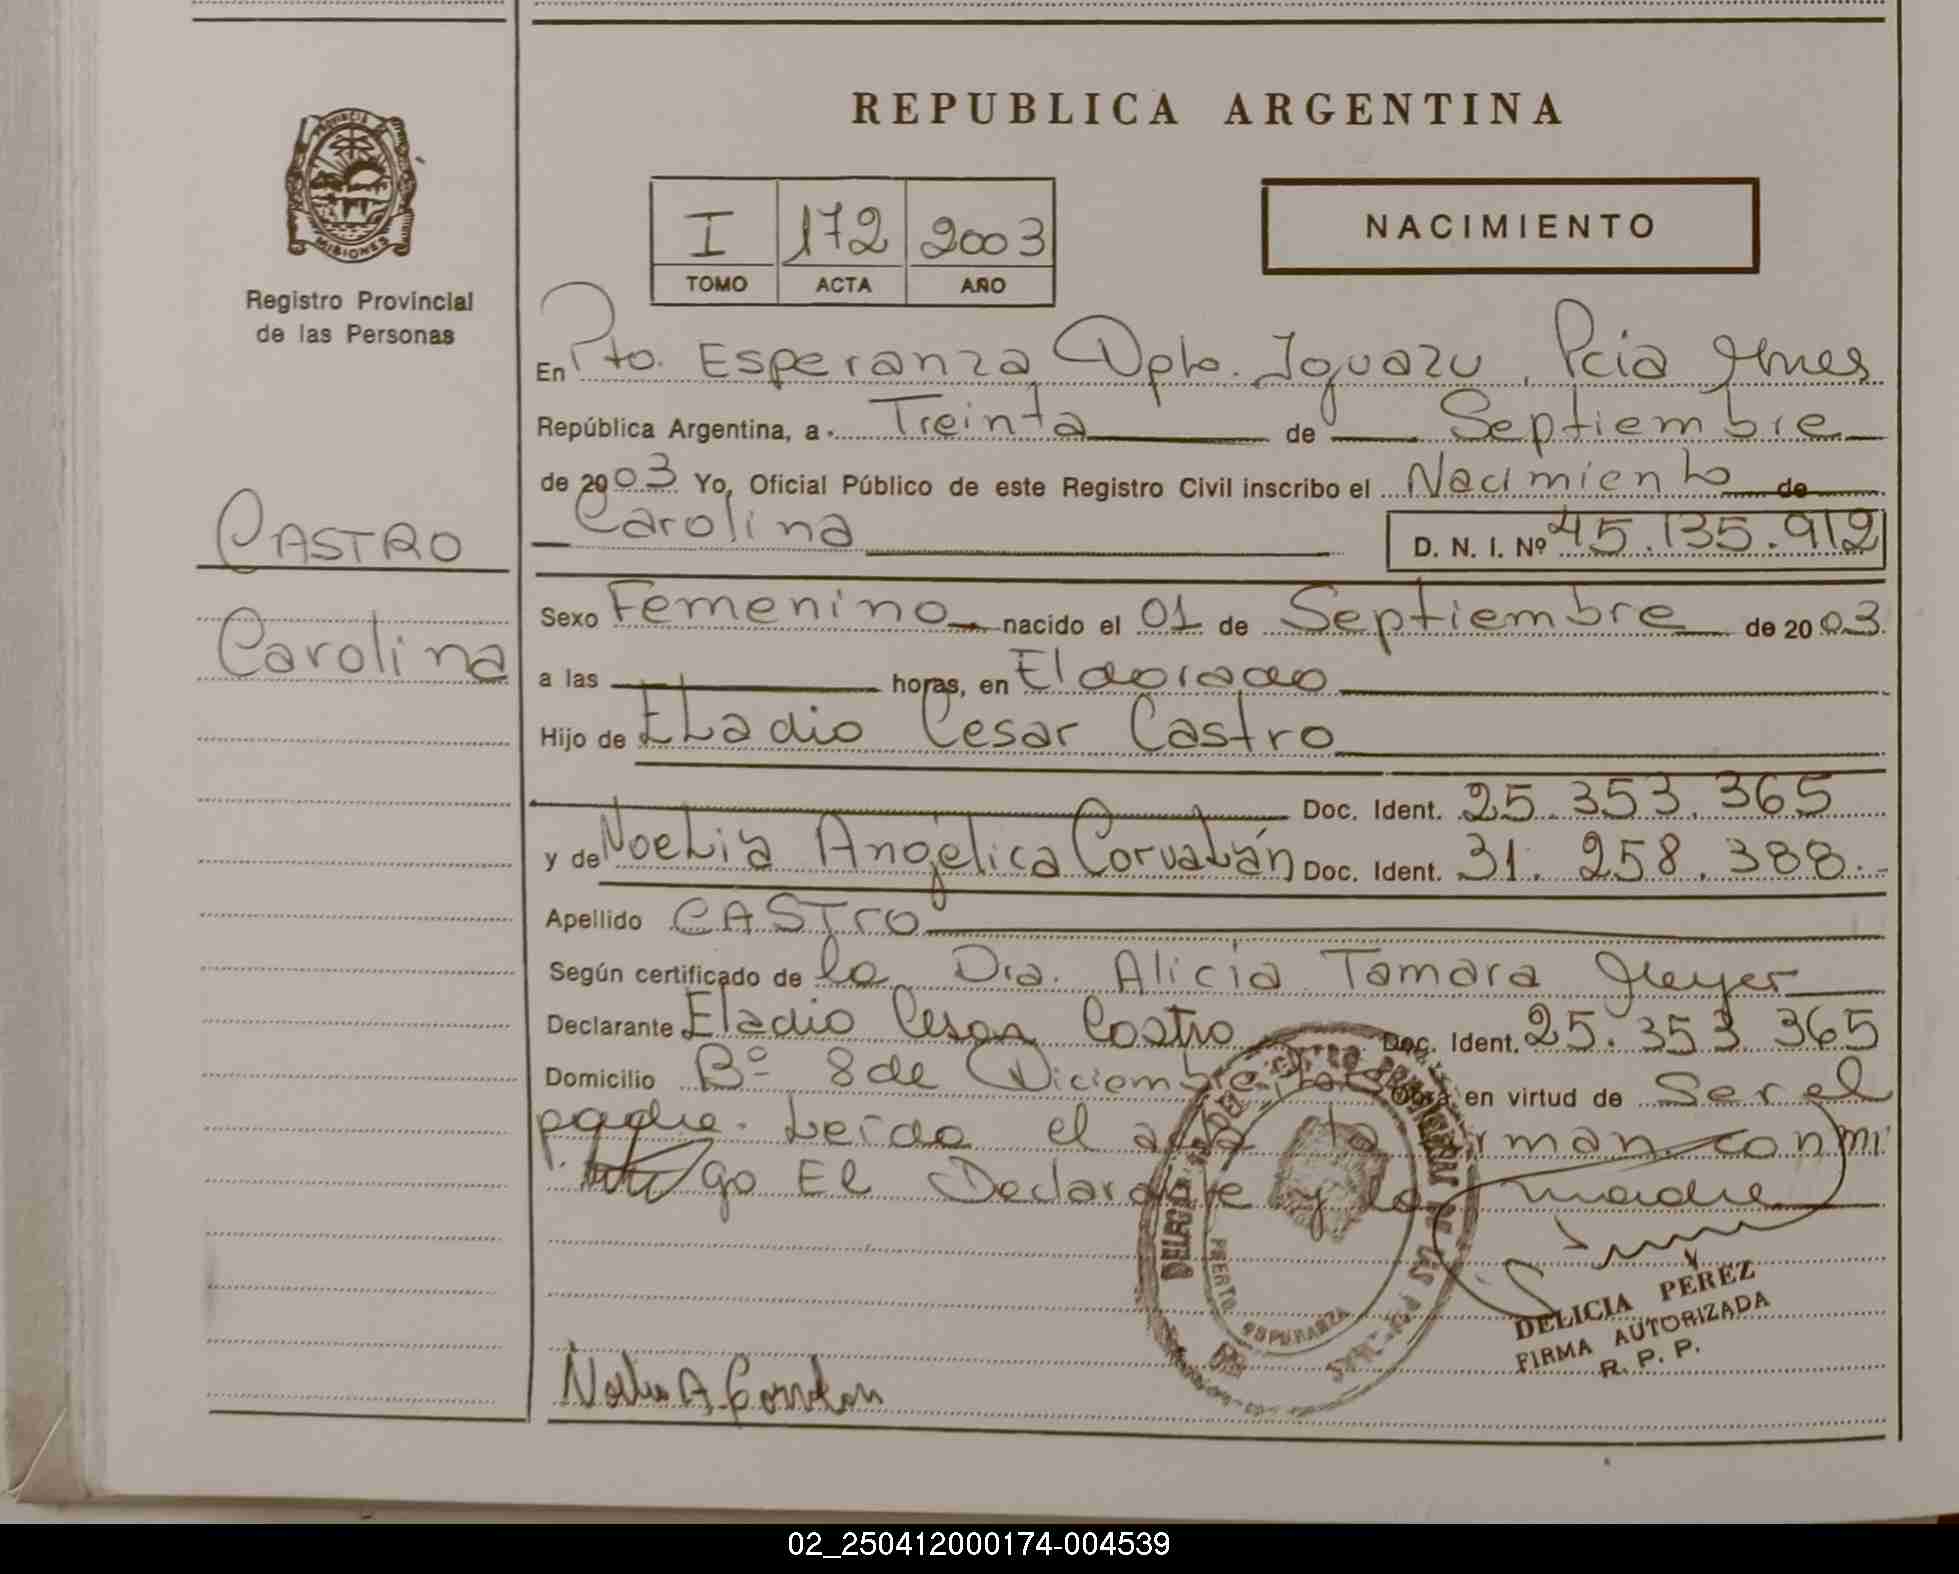 REPUBLICA ARGENTINA
PROVINCIA DE
MISIONES
Registro Provincial
de las Personas
I 172 2003
TOMO ACTA AÑO
NACIMIENTO
En Pto. Esperanza Dpto. Iguazu, Pcia Mnes
República Argentina, a Treinta de Septiembre
de 2003 Yo, Oficial Público de este Registro Civil inscribo el Nacimiento de
Carolina D. N. I. Nº 45.135.912
CASTRO
Carolina
Sexo Femenino nacido el 01 de Septiembre de 2003
a las horas, en Eldorado
Hijo de Eladio Cesar Castro
Doc. Ident. 25.353.365
y de Noelia Angélica Corvalán Doc. Ident. 31.258.388.
Apellido CASTRO
Según certificado de la Dra. Alicia Tamara Meyer
Declarante Eladio Cesar Castro Doc. Ident. 25.353 365
Domicilio Bº 8 de Diciembre Obra en virtud de Ser el
padre. Leída el acta la firman conmi
go El Declarante y la madre
PUERTO ESPERANZA
DELICIA PEREZ
FIRMA AUTORIZADA
R. P. P.
Noelia A Corvalan
02_250412000174-004539